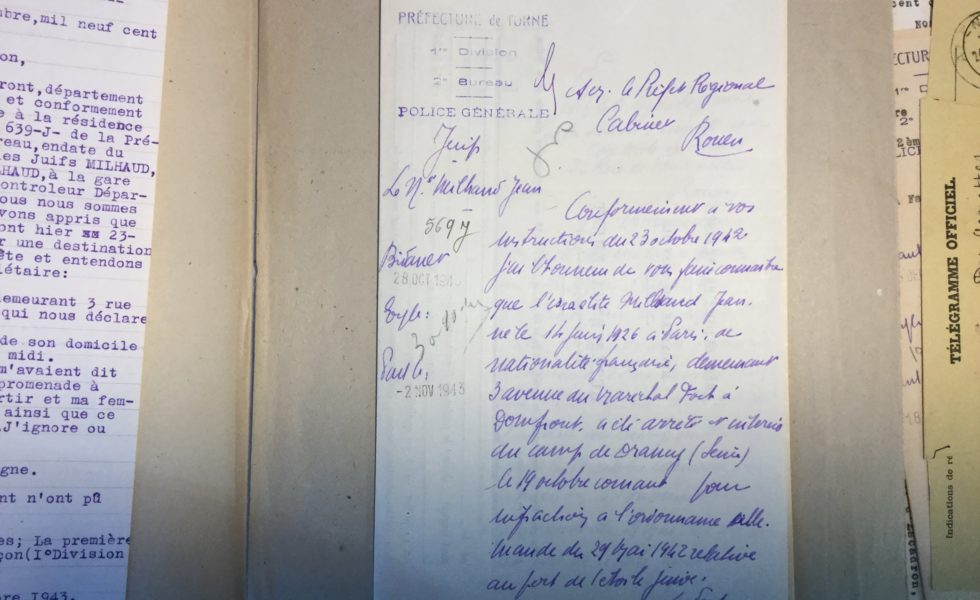 bre, mil neuf cent
on,
ront, département
et conformement
e à la résidence
639-J- de la Pré-
reau, endate du
les Juifs MILHAUD,
HAUD, à la gare
ontroleur Dépar-
ous nous sommes
vons appris que
ont hier 23-
r une destination
ête et entendons
étaire:
demeurant 3 rue
qui nous déclare
de son domicile
midi.
m'avaient dit
promenade à
rtir et ma fem-
ainsi que ce
J'ignore ou
gne.
nt n'ont pû
es; La première
çon(I° Division
re 1943.
PRÉFECTURE de l'ORNE
1re Division
2e Bureau
POLICE GÉNÉRALE
Juif
Milhaud Jean
569 J
28 OCT 194
-2 NOV 1943
le Préfet Régional
Cabinet
Rouen
Conformément à vos
instructions du 23 octobre 1942
j'ai l'honneur de vous faire connaître
que l'israélite Milhaud Jean
né le 14 juin 1926 à Paris, de
nationalité française, demeurant
3 avenue du Maréchal Foch à
Domfront, a été arrêté et interné
au camp de Drancy (Seine)
le 19 octobre courant pour
infraction à l'ordonnance alle-
mande du 29 Mai 1942 relative
au port de l'étoile juive.
TÉLÉGRAMME OFFICIEL.
Indications de